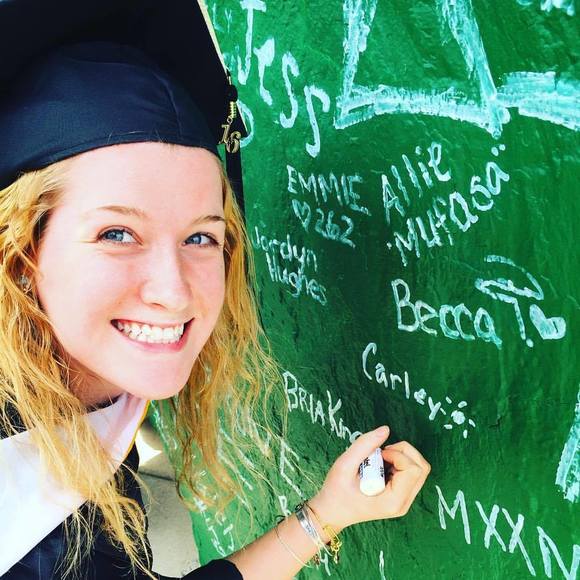 Jess
'16
EMMIE
♡262
Allie
"Mufasa"
Jordyn
Hughes
Becca T. ♡
Carley
BRIA King
MXXM